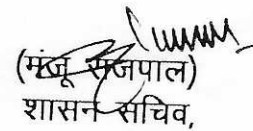 (मंजू राजपाल)
शासन सचिव,